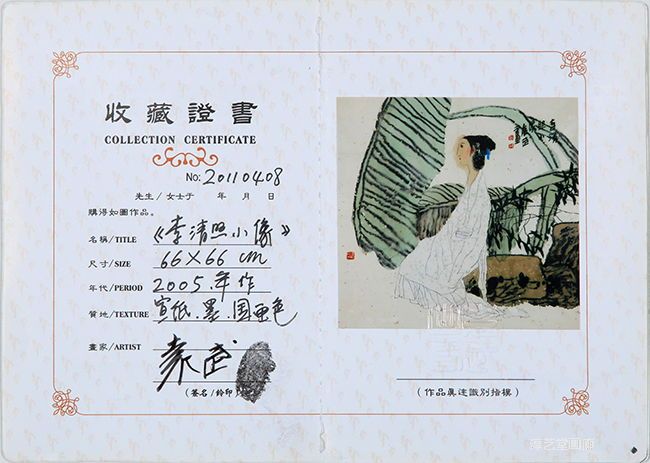 收藏證書
COLLECTION CERTIFICATE
No: 20110408
先生/女士于 年 月 日
購得如圖作品。
名稱/TITLE 《李清照小像》
尺寸/SIZE 66×66cm
年代/PERIOD 2005.年作
質地/TEXTURE 宣纸.墨.国画色
畫家/ARTIST 袁武
(簽名/鈐印)
(作品真迹識别指模)